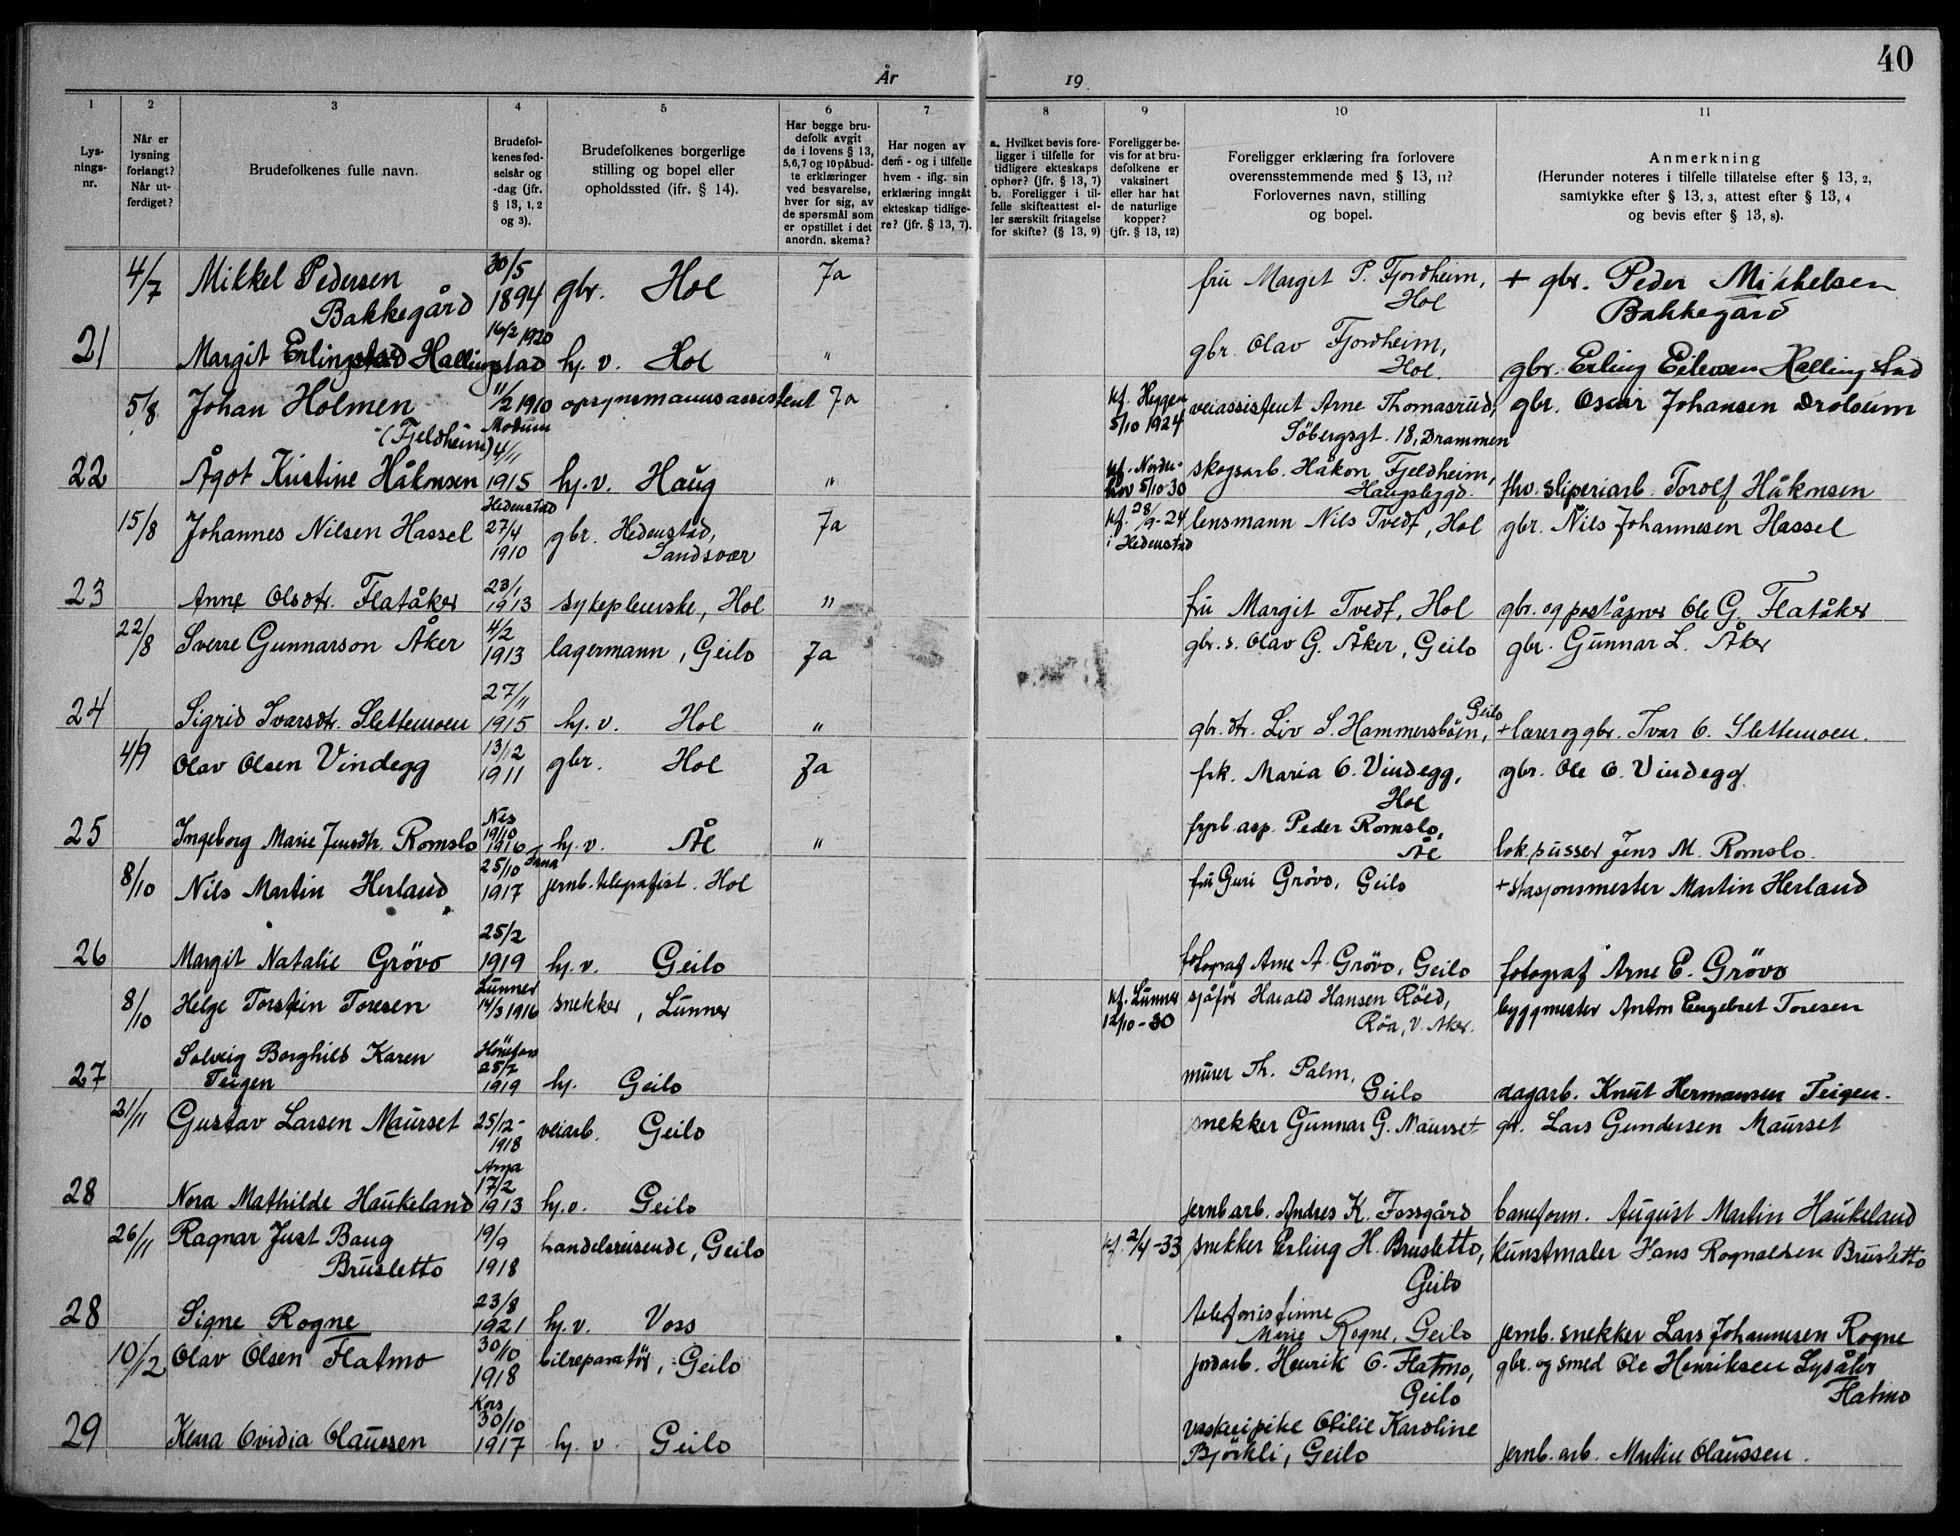 40
År 19
1 2 3 4 5 6 7 8 9 10 11
Lysningsnr.
Når er lysning forlangt? Når utferdiget?
Brudefolkenes fulle navn.
Brudefolkenes fødselsår og -dag (jfr. § 13, 1, 2 og 3).
Brudefolkenes borgerlige stilling og bopel eller opholdssted (ifr. § 14).
Har begge brudefolk avgit de i lovens § 13, 5, 6, 7 og 10 påbudte erklæringer ved besvarelse, hver for sig, av de spørsmål som er opstillet i det anordn. skema?
Har nogen av dem - og i tilfelle hvem - iflg. sin erklæring inngått ekteskap tidligere? (jfr. § 13, 7).
a. Hvilket bevis foreligger i tilfelle for tidligere ekteskaps ophør? (jfr. § 13, 7) b. Foreligger i tilfelle skifteattest eller særskilt fritagelse for skifte? (§ 13, 9)
Foreligger bevis for at brudefolkene er vaksinert eller har hat de naturlige kopper? (jfr. § 13, 12)
Foreligger erklæring fra forlovere overensstemmende med § 13, 11? Forlovernes navn, stilling og bopel.
Anmerkning (Herunder noteres i tilfelle tillatelse efter § 13, 2, samtykke efter § 13, 3, attest efter § 13, 4 og bevis efter § 13, 8).
4/7 Mikkel Pedersen Bakkegård 30/5 1894 gbr. Hol Ja fru Margit P. Fjordheim, Hol + gbr. Peder Mikkelsen Bakkegård
21 Margit Hallingstad 16/2 1920 hj. v. Hol " gbr. Olav Fjordheim, Hol. gbr. Erling Eilevsen Hallingstad
5/8 Johan Holmen 11/2 1910 Modum opsynsmannsassistent Ja kf. Heggen 5/10 1924 veiassistent Arne Thomasrud, Söbergsgt. 18, Drammen gbr. Oscar Johansen Drolsum
22 (Fjeldheim) Ågot Kristine Håkonsen 4/11 1915 hj. v. Haug " kf. Norderhov 5/10-30 skogsarb. Håkon Fjeldheim, Haugsbygd. fhv. sliperiarb. Torolf Håkonsen
15/8 Johannes Nilsen Hassel Hedenstad 27/4 1910 gbr. Hedenstad, Sandsvær Ja kf. 28/9-24 i Hedenstad lensmann Nils Tvedt, Hol gbr. Nils Johannesen Hassel
23 Anne Olsdtr. Flatåker 23/1 1913 sykepleierske, Hol " fru Margit Tvedt, Hol gbr. og poståpner Ole G. Flatåker
22/8 Sverre Gunnarson Åker 4/2 1913 lagermann, Geilo Ja gbr. s. Olav G. Åker, Geilo gbr. Gunnar L. Åker
24 Sigrid Ivarsdtr. Slettemoen 27/11 1915 hj. v. Hol " gbr. dtr. Liv S. Hammersböen, Geilo + lærer og gbr. Ivar O. Slettemoen.
4/9 Olav Olsen Vindegg 13/12 1911 gbr. Hol Ja frk. Maria O. Vindegg, Hol gbr. Ole O. Vindegg
25 Ingeborg Marie Jensdtr. Romslo Nes 19/10 1916 hj. v. Ål " fyrb. asp. Peder Romslo, Ål lok. pusser Jens M. Romslo.
8/10 Nils Martin Herland 25/10 Fana 1917 jernb. telegrafist. Hol fru Guri Grövo, Geilo + stasjonsmester Martin Herland
26 Margit Natalie Grövo 25/2 1919 hj. v. Geilo fotograf Arne A. Grövo, Geilo fotograf Arne E. Grövo
8/10 Helge Torstein Toresen Lunner 14/3 1916 snekker, Lunner kf. Lunner 12/10-30 sjåför Harald Hansen Röed, Röa, V. Aker. byggmester Anton Engebret Toresen
27 Solveig Borghild Karen Teigen Hönefoss 25/7 1919 hj. Geilo murer Th. Palm, Geilo dagarb. Knut Hermansen Teigen.
21/11 Gustav Larsen Maurset 25/12- 1918 veiarb. Geilo snekker Gunnar G. Maurset gbr. Lars Gundersen Maurset
28 Nora Mathilde Haukeland Arna 17/2 1913 hj. v. Geilo jernb arb. Andres K. Fossgård baneform. August Martin Haukeland
26/11 Ragnar Just Baug Brusletto 19/9 1918 handelsreisende, Geilo kf. 2/4-33 snekker Erling H. Brusletto, Geilo kunstmaler Hans Rognaldsen Brusletto
28 Signe Rogne 23/8 1921 hj. v. Voss telefonistinne Marie Rogne, Geilo jernb. snekker Lars Johannesen Rogne
10/12 Olav Olsen Flatmo 30/10 1918 bilreparatör, Geilo jordarb. Henrik O. Flatmo, Geilo gbr. og smed Ole Henriksen Flatmo
29 Ovidia Olaussen Kors 30/10 1917 hj. v. Geilo vaskeripike Otilie Karoline Björkli, Geilo jernb. arb. Martin Olaussen.